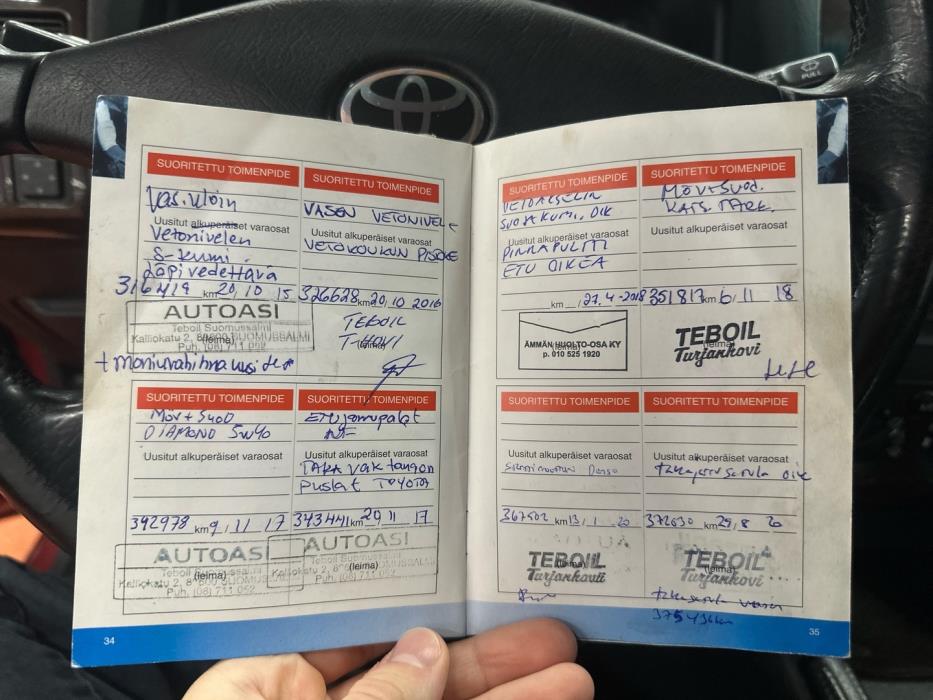 PULL
SUORITETTU TOIMENPIDE
Vas. uloin
Uusitut alkuperäiset varaosat
Vetonivelen
S-kumi.
Läpivedettävä
316419 km 20, 10 15
AUTOASI
Teboil Suomussalmi
Kalliokatu 2, 89600 SUOMUSSALMI
(leima)
Puh. (08) 711 052
+ moniurahihna uusi
SUORITETTU TOIMENPIDE
VASEN VETONIVELE
Uusitut alkuperäiset varaosat
VETOKOUKUN
326628 km 20, 10 2016
TEBOIL
(leima)
SUORITETTU TOIMENPIDE
MÖV + SUOD
DIAMOND 5W40
Uusitut alkuperäiset varaosat
342978 km 9, 11 17
AUTOASI
Teboil Suomussalmi
Kalliokatu 2, 89600 SUOMUSSALMI
(leima)
Puh. (08) 711 052
SUORITETTU TOIMENPIDE
Etujarrupalat
Uusitut alkuperäiset varaosat
TAKA vak tangon
puslat TOYOTA
343441 km 20 11 17
AUTOASI
Teboil Suomussalmi
Kalliokatu 2, 89600 SUOMUSSALMI
(leima)
Puh. (08) 711 052
34
SUORITETTU TOIMENPIDE
VETOAKSELIN
SUOJAKUMI, OIK
Uusitut alkuperäiset varaosat
ETU OIKEA
km 27. 4 - 2018
ÄMMÄN HUOLTO-OSA KY
p. 010 525 1920
SUORITETTU TOIMENPIDE
MÖV + SUOD.
KATS. TARK.
Uusitut alkuperäiset varaosat
351817 km 6, 11 18
TEBOIL
(leima)
Turjankovi
SUORITETTU TOIMENPIDE
Uusitut alkuperäiset varaosat
367502 km 13, 1 20
TEBOIL
(leima)
Turjankovi
SUORITETTU TOIMENPIDE
Uusitut alkuperäiset varaosat
takajarrusatula oik
372630 km 29, 8 20
TEBOIL
(leima)
Turjankovi
takasatula vasen
35